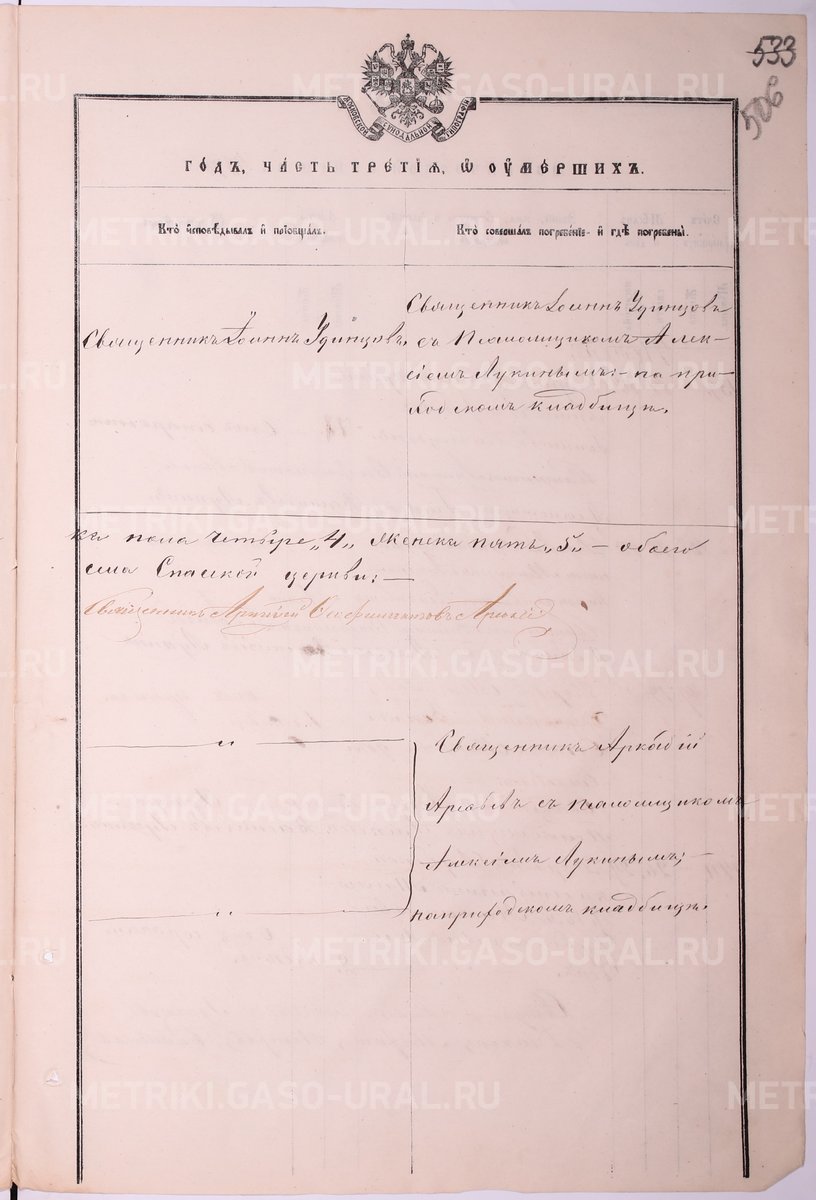 533
506
МОСКОВСКОЙ СѴНОДАЛЬНОЙ ТИПОГРАФІИ
ГО́ДЪ, ЧА́СТЬ ТРЕ́ТІѦ, Ѡ ОУ҆МЕ́РШИХЪ.
Кто̀ и҆сповѣ́дывалъ и҆ прїѡбща́лъ.
Кто̀ соверша́лъ погребе́нїе и҆ гдѣ̀ погребены̀.
Священникъ Іоаннъ Удинцовъ.
Священникъ Іоаннъ Удинцовъ
съ Псаломщикомъ Алек-
сіемъ Лукинымъ:- на при-
ходскомъ кладбищѣ.
ка пола четыре „4„ женска пять „5„ – обоего
села Спасской церкви:—
Священникъ Аркадій
— „ —
Священникъ Аркадій
съ псаломщикомъ
Алексіемъ Лукинымъ;–
на приходскомъ кладбищѣ.
— „ —
METRIKI.GASO-URAL.RU